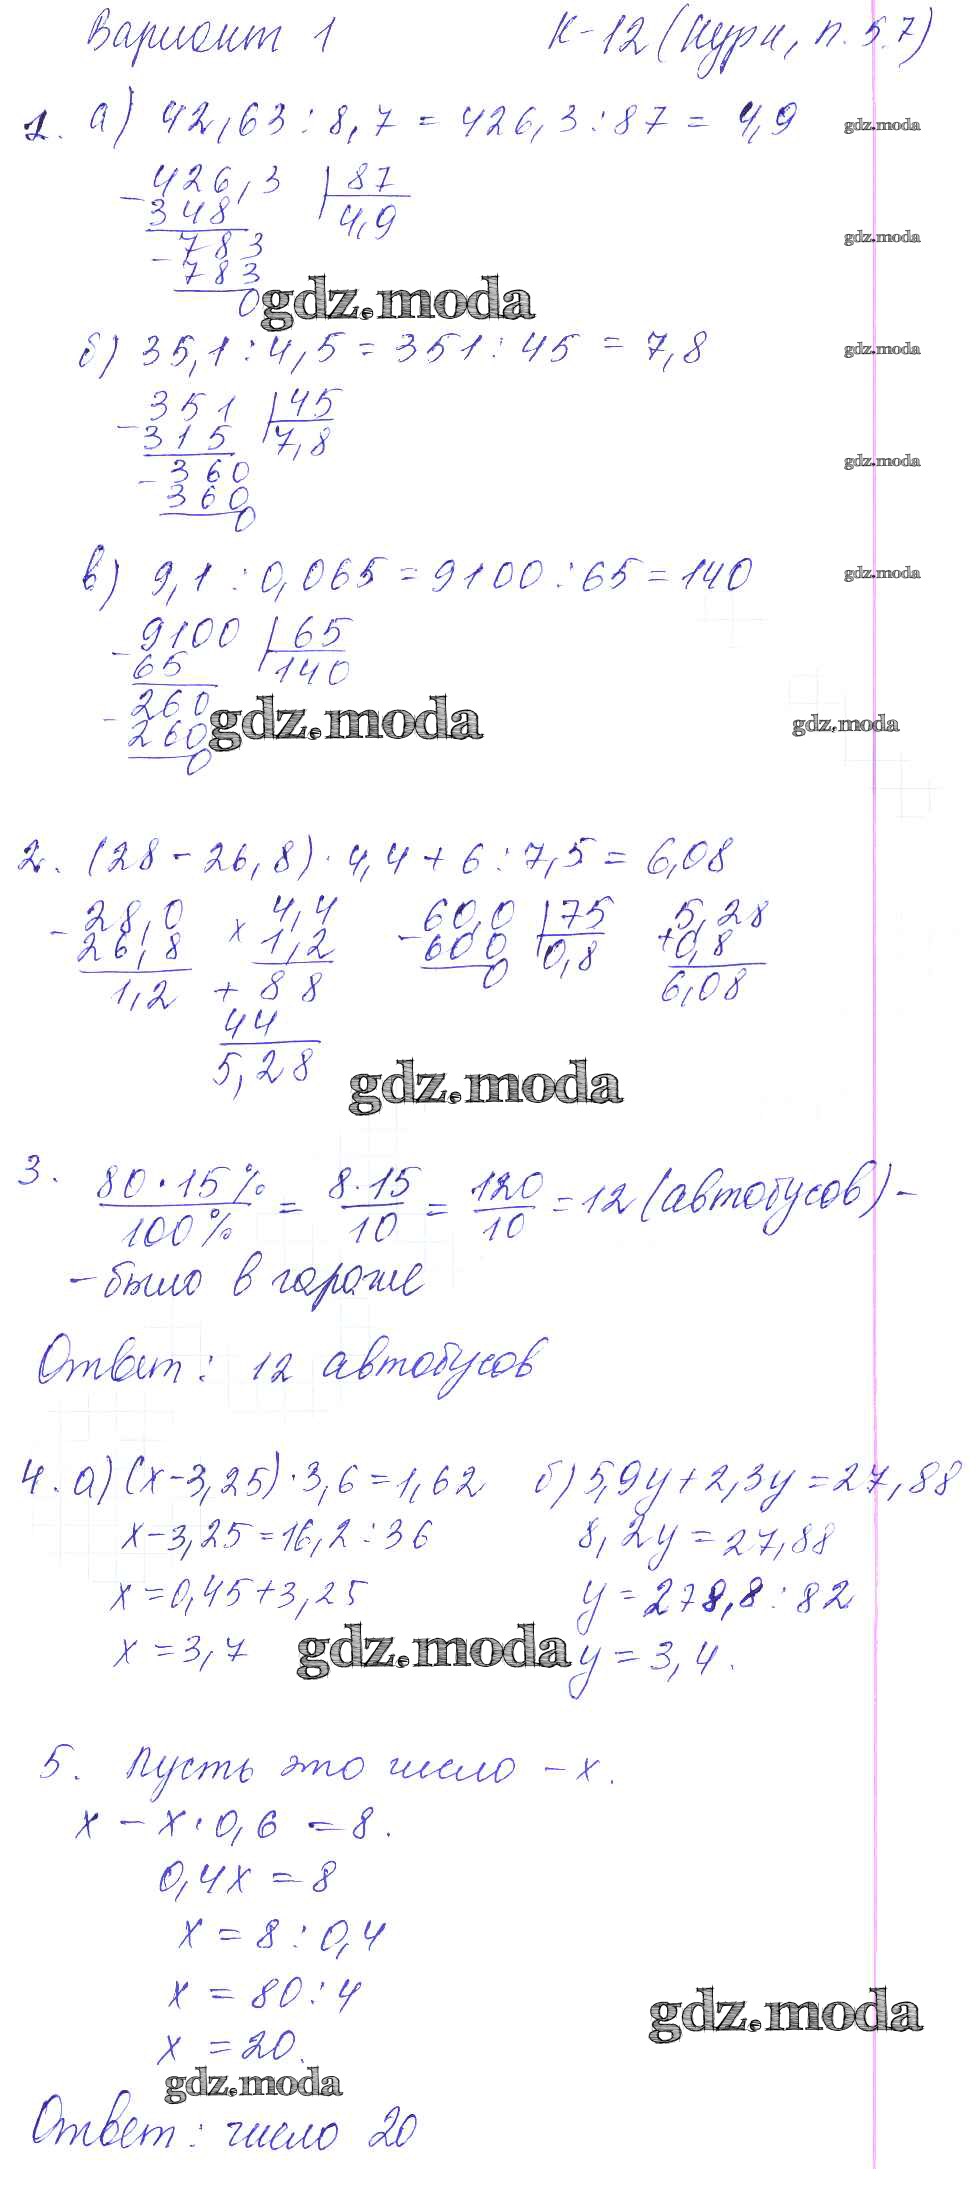 Вариант 1 К-12 (Нурк, п. 5.7)
1. а) 42,63 : 8,7 = 426,3 : 87 = 4,9 gdz.moda
- 426,3 | 87
348 4,9
- 783 gdz.moda
783
0 gdz.moda
б) 35,1 : 4,5 = 351 : 45 = 7,8 gdz.moda
- 351 | 45
315 7,8
- 360 gdz.moda
360
0
в) 9,1 : 0,065 = 9100 : 65 = 140 gdz.moda
- 9100 | 65
65 140
- 260 gdz.moda gdz.moda
260
0
2. (28 - 26,8) · 4,4 + 6 : 7,5 = 6,08
- 28,0 × 4,4 - 60,0 | 75 + 5,28
26,8 1,2 600 0,8 0,8
1,2 + 88 0 6,08
44
5,28
gdz.moda
3. 80 · 15% / 100% = 8 · 15 / 10 = 120 / 10 = 12 (автобусов) -
- было в гараже
Ответ: 12 автобусов
4. а) (x - 3,25) · 3,6 = 1,62 б) 5,9y + 2,3y = 27,88
x - 3,25 = 16,2 : 36 8,2y = 27,88
x = 0,45 + 3,25 y = 278,8 : 82
x = 3,7 gdz.moda y = 3,4.
5. Пусть это число - x.
x - x · 0,6 = 8.
0,4x = 8
x = 8 : 0,4
x = 80 : 4 gdz.moda
x = 20.
gdz.moda
Ответ: число 20